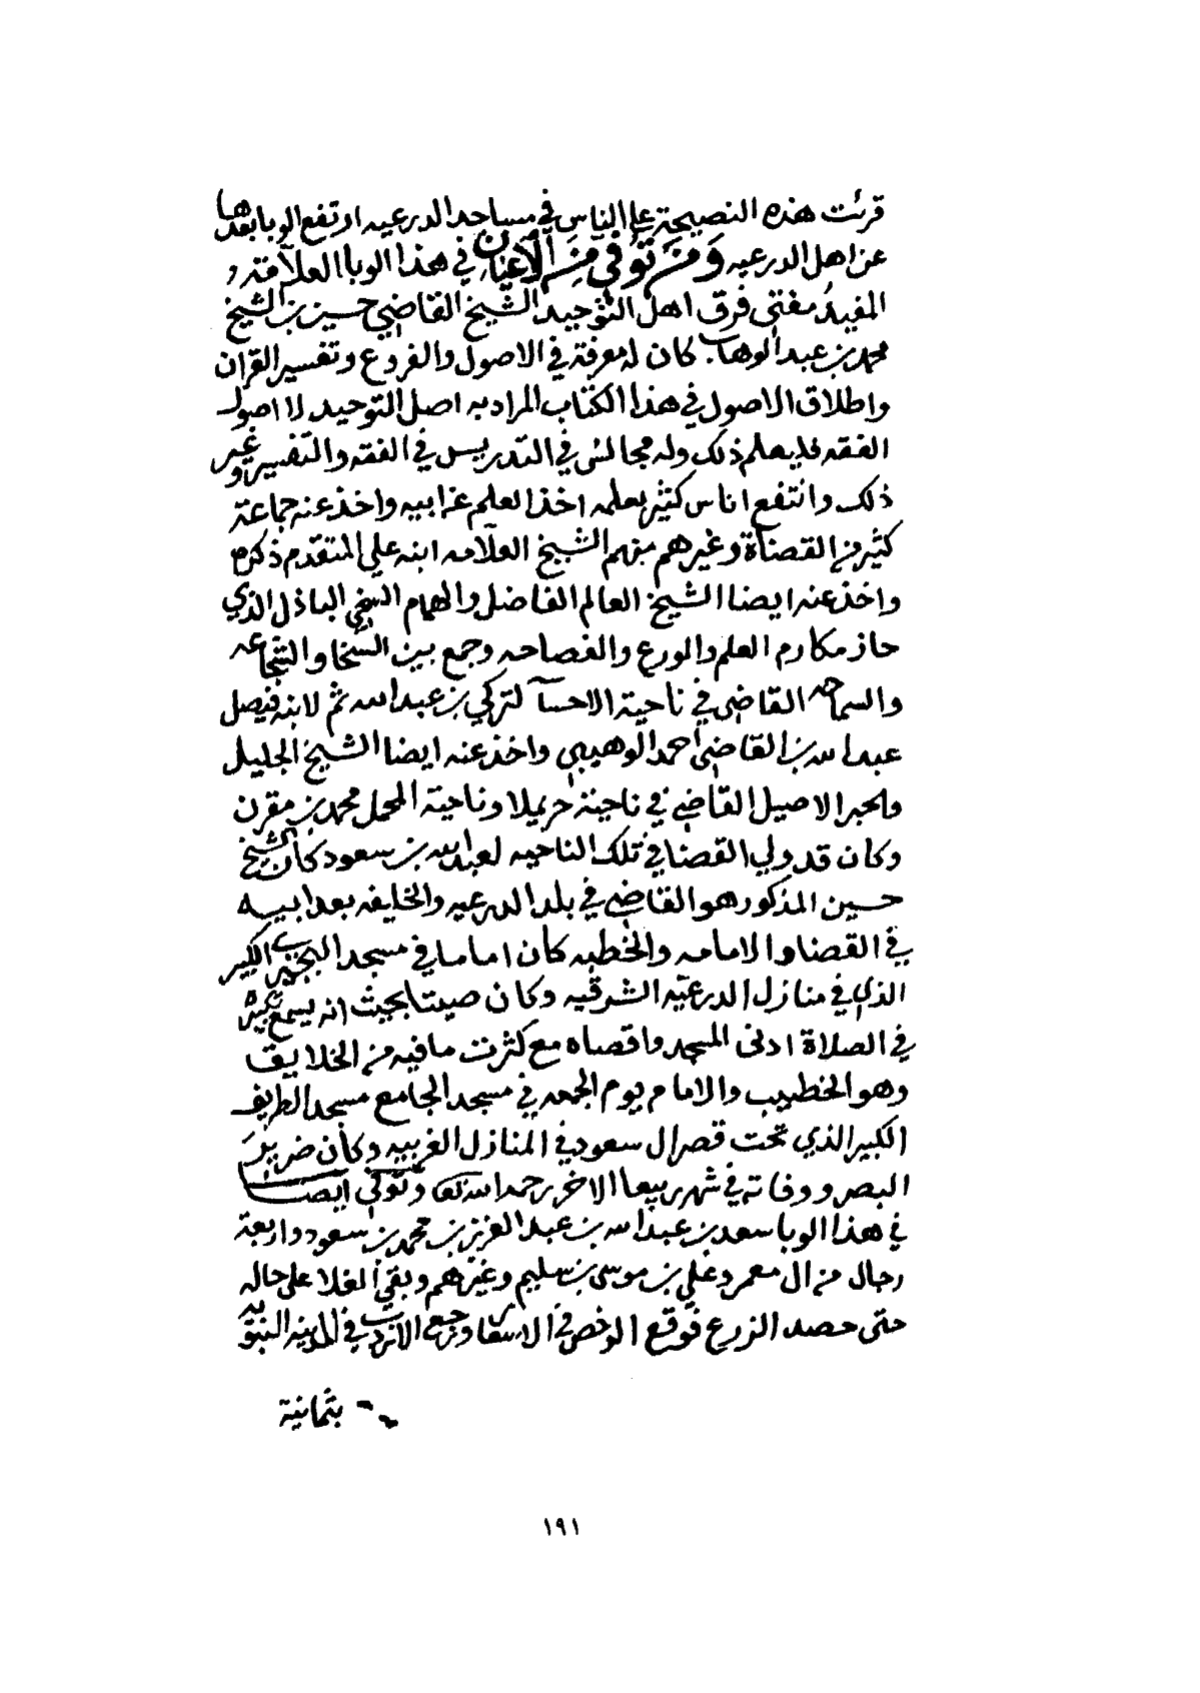 قرئت هذه النصيحة على الناس في مساجد الدرعيه ارتفع الوبا بعدها
عن اهل الدرعيه وَمَن تُوفي مِنَ الأعيَان في هذا الوبا العلآمة و
المفيدُ مفتي فرق اهل التوحيد الشيخ القاضي حسين بن الشيخ
محمد بن عبد الوهاب. كان له معرفة في الاصول والفروع وتفسير القران
واطلاق الاصول في هذا الكتاب المراد به اصل التوحيد لا اصول
الفقه فليعلم ذلك وله مجالس في التدريس في الفقه والتفسير وغير
ذلك وانتفع اناس كثير بعلمه اخذ العلم عن ابيه واخذ عنه جماعة
كثير من القضاة وغيرهم منهم الشيخ العلآمه ابنه علي المتقدم ذكره
واخذ عنه ايضا الشيخ العالم الفاضل والهمام السخي الباذل الذي
حاز مكارم العلم والورع والفصاحه وجمع بين السخا والشجاعه
والسماحه القاضي في ناحية الاحسآ لتركي بن عبد الله ثم لابنه فيصل
عبد الله بن القاضي احمد الوهيبي واخذ عنه ايضا الشيخ الجليل
والحبر الاصيل القاضي في ناحية حريملا وناحية المحمل محمد بن مقرن
وكان قد ولي القضا في تلك الناحيه لعبد الله بن سعود كان الشيخ
حسين المذكور هو القاضي في بلد الدرعيه والخليفه بعد ابيه
في القضا والامامه والخطبه كان اماما في مسجد البجيري الكبير
الذي في منازل الدرعيّه الشرقيه وكان صيتا بحيث انه يسمع تكبيره
في الصلاة ادنى المسجد واقصاه مع كثرت ما فيه من الخلايق
وهو الخطيب والامام يوم الجمعه في مسجد الجامع مسجد الطريف
الكبير الذي تحت قصر ال سعود في المنازل الغربيه وكان ضرير
البصر ووفاته في شهر ربيع الاخر رحمه الله تعا وتُوفي ايضا
في هذا الوبا سعد بن عبد الله بن عبد العزيز بن محمد بن سعود واربعة
رجال من ال معمر وعلي بن موسى بن سليم وغيرهم وبقي الغلا على حاله
حتى حصد الزرع فوقع الرخص في الاسعار وبيع الاردب في المدينه النبويه
بثمانية
١٩١